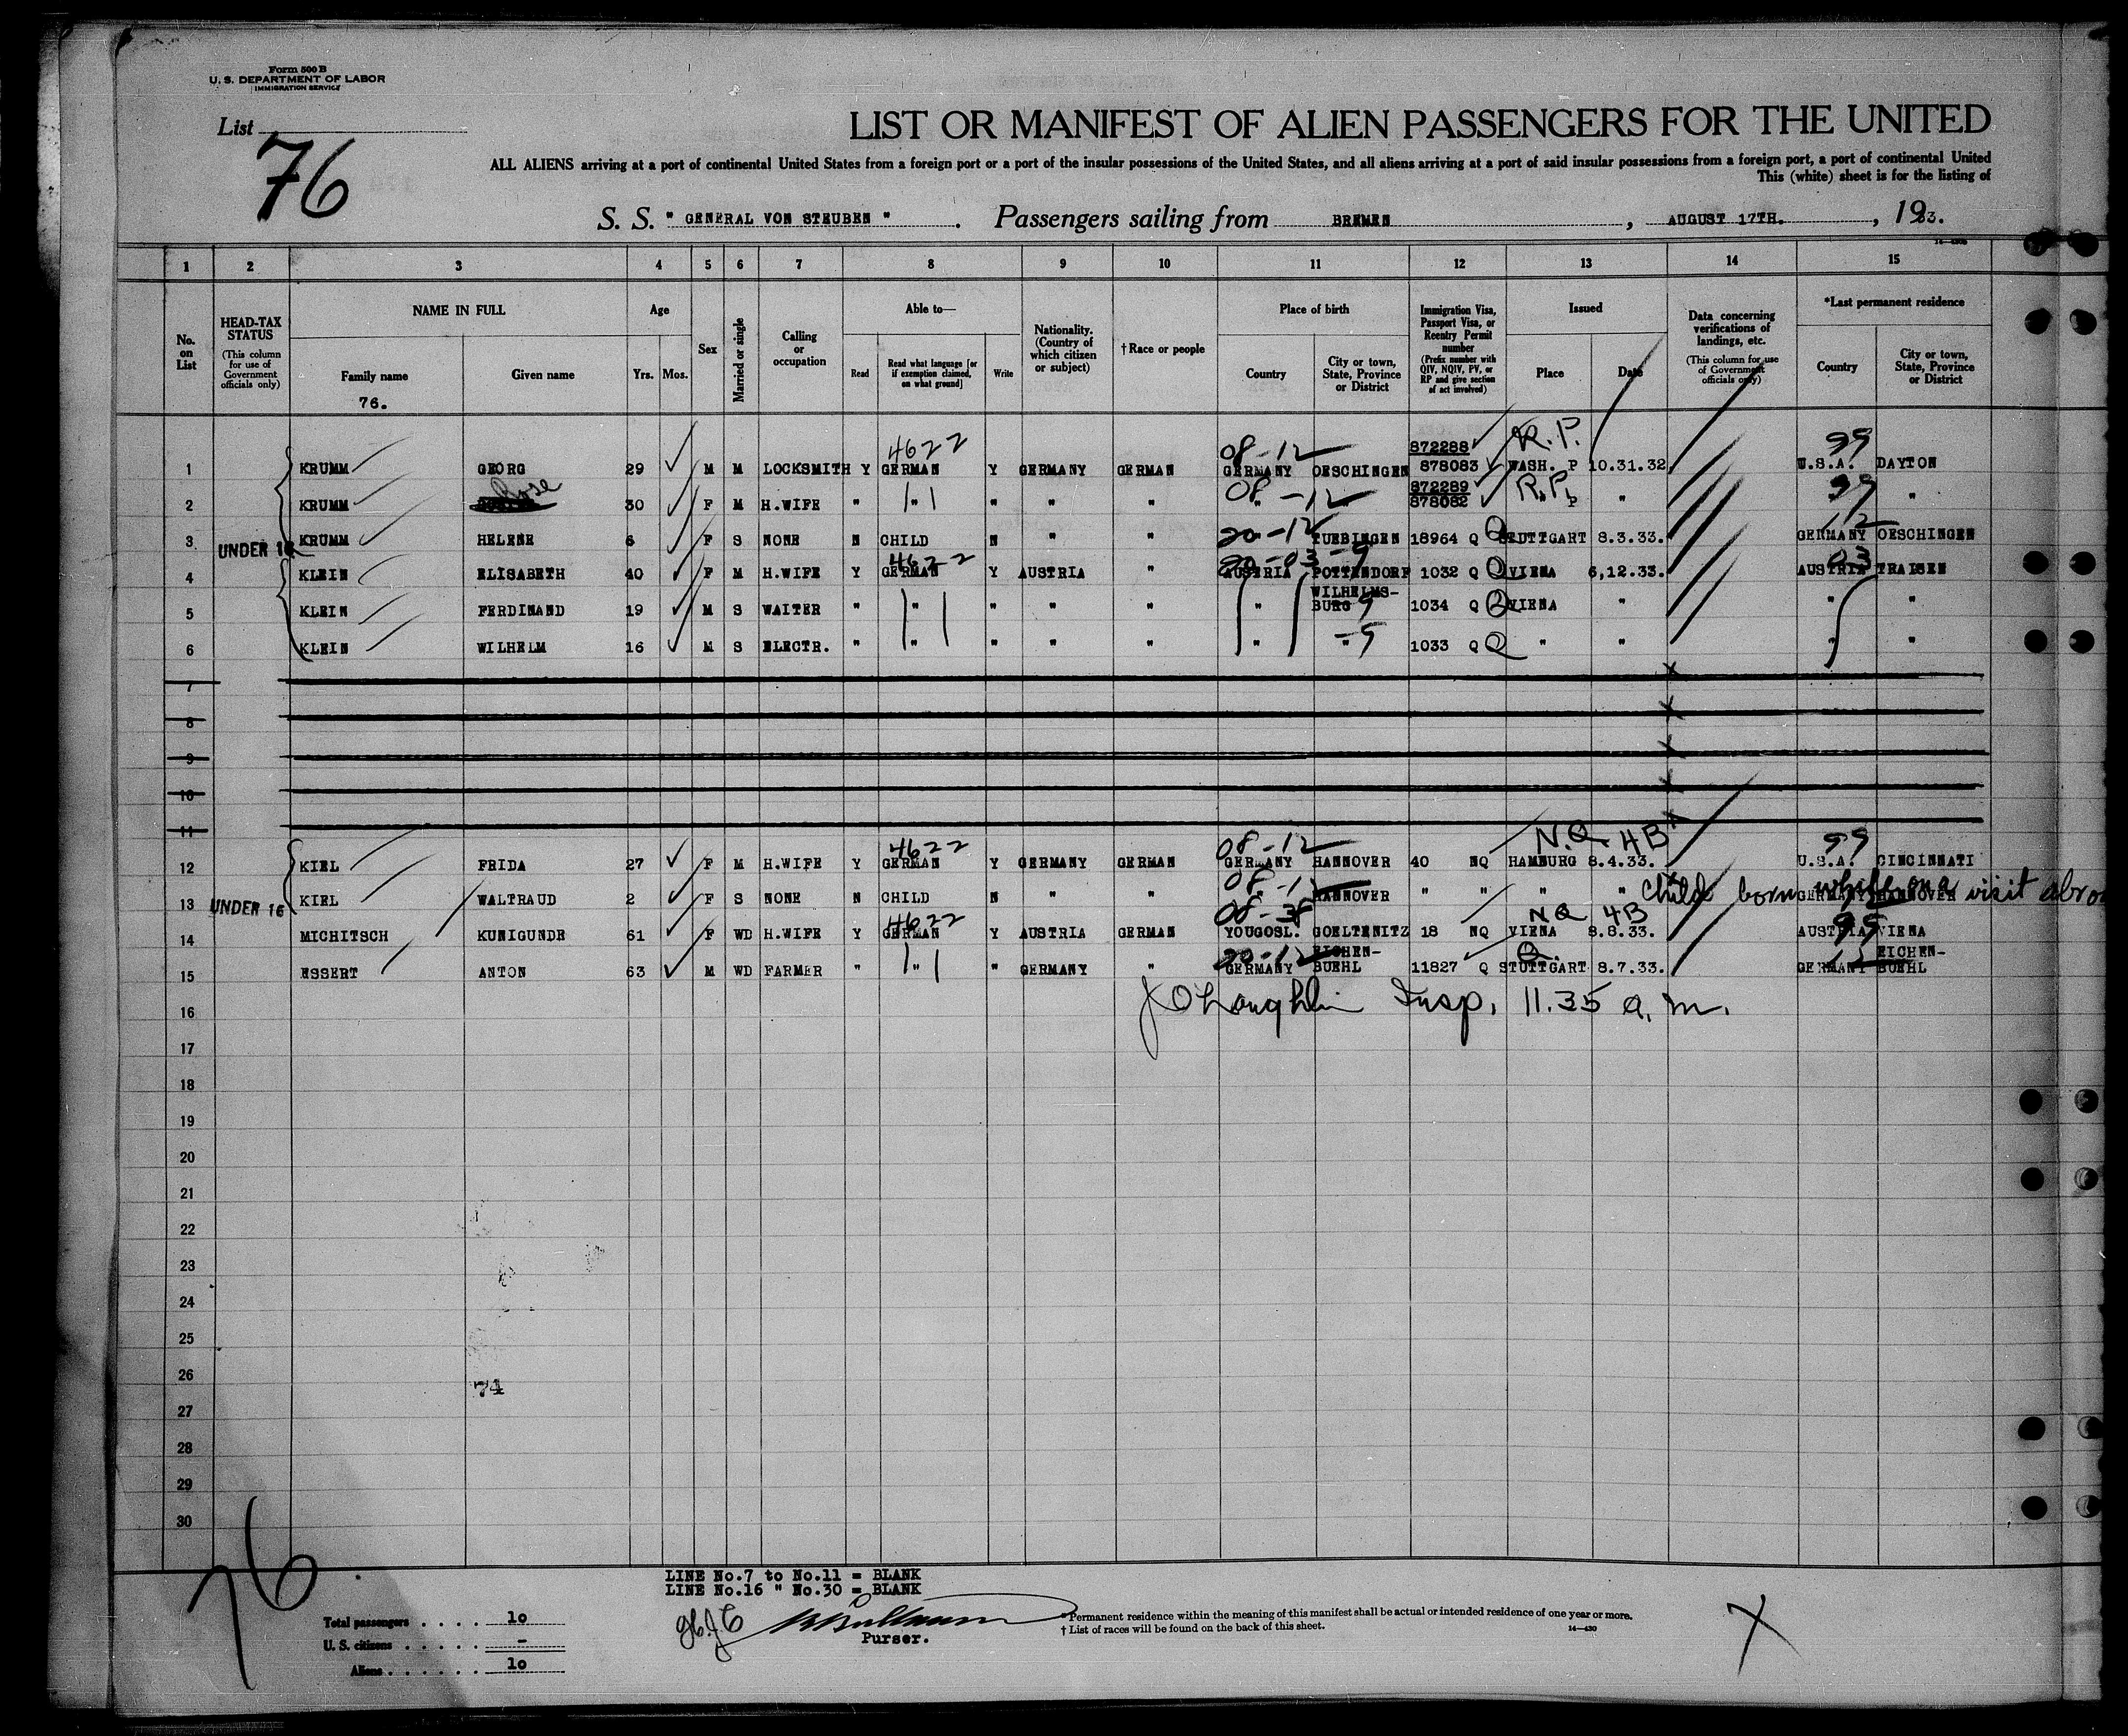 Form 500 B
U. S. DEPARTMENT OF LABOR
IMMIGRATION SERVICE
List 76
LIST OR MANIFEST OF ALIEN PASSENGERS FOR THE UNITED
ALL ALIENS arriving at a port of continental United States from a foreign port or a port of the insular possessions of the United States, and all aliens arriving at a port of said insular possessions from a foreign port, a port of continental United
This (white) sheet is for the listing of
S. S. " GENERAL VON STEUBEN " . Passengers sailing from BREMEN , AUGUST 17TH. , 1933.
1 2 3 4 5 6 7 8 9 10 11 12 13 14 15
No. on List
HEAD-TAX STATUS (This column for use of Government officials only)
NAME IN FULL Family name Given name
76.
Age Yrs. Mos.
Sex
Married or single
Calling or occupation
Able to— Read Read what language [or if exemption claimed, on what ground] Write
Nationality. (Country of which citizen or subject)
† Race or people
Place of birth Country City or town, State, Province or District
Immigration Visa, Passport Visa, or Reentry Permit number (Prefix number with QIV, NQIV, PV, or RP and give section of act involved)
Issued Place Date
Data concerning verifications of landings, etc. (This column for use of Government officials only)
*Last permanent residence Country City or town, State, Province or District
4622 08-12 872288 R.P. 99
1 KRUMM GEORG 29 M M LOCKSMITH Y GERMAN Y GERMANY GERMAN GERMANY OESCHINGEN 878083 WASH. P 10.31.32 U.S.A. DAYTON
Rose 08-12 872289 R.P. 99
2 KRUMM 30 F M H.WIFE " " " " " " " 878082 P " " "
20-12 12
UNDER 16 3 KRUMM HELENE 6 F S NONE N CHILD N " " TUEBINGEN 18964 Q Q STUTTGART 8.3.33. GERMANY OESCHINGEN
4622 20-03-9 03
4 KLEIN ELISABETH 40 F M H.WIFE Y GERMAN Y AUSTRIA " AUSTRIA POTTENDORF 1032 Q Q VIENA 6,12.33. AUSTRIA TRAISEN
5 KLEIN FERDINAND 19 M S WAITER " " " " " " WILHELMS-BURG 9 1034 Q Q VIENA " " "
6 KLEIN WILHELM 16 M S ELECTR. " " " " " " " -9 1033 Q Q " " " "
7
8
9
10
11
4622 08-12 N.Q 4B 99
12 KIEL FRIDA 27 F M H.WIFE Y GERMAN Y GERMANY GERMAN GERMANY HANNOVER 40 NQ HAMBURG 8.4.33. U.S.A. CINCINNATI
Child born while on a visit abro
UNDER 16 13 KIEL WALTRAUD 2 F S NONE N CHILD N " " " HANNOVER " " " " GERMANY HANNOVER
4622 NQ 4B 99
14 MICHITSCH KUNIGUNDE 61 F WD H.WIFE Y GERMAN Y AUSTRIA GERMAN YOUGOSL. GOELTENITZ 18 NQ VIENA 8.8.33. AUSTRIA VIENA
20-12 Q. 12
15 ESSERT ANTON 63 M WD FARMER " " " GERMANY " GERMANY EICHEN-BUEHL 11827 Q STUTTGART 8.7.33. GERMANY EICHEN-BUEHL
J O'Loughlin Insp. 11.35 a.m.
16
17
18
19
20
21
22
23
24
25
26
74
27
28
29
30
76
LINE No.7 to No.11 = BLANK
LINE No.16 " No.30 = BLANK
Total passengers . . . . 10
U. S. citizens . . . . . -
Aliens . . . . . . 10
Purser.
*Permanent residence within the meaning of this manifest shall be actual or intended residence of one year or more.
† List of races will be found on the back of this sheet.
14—430
X